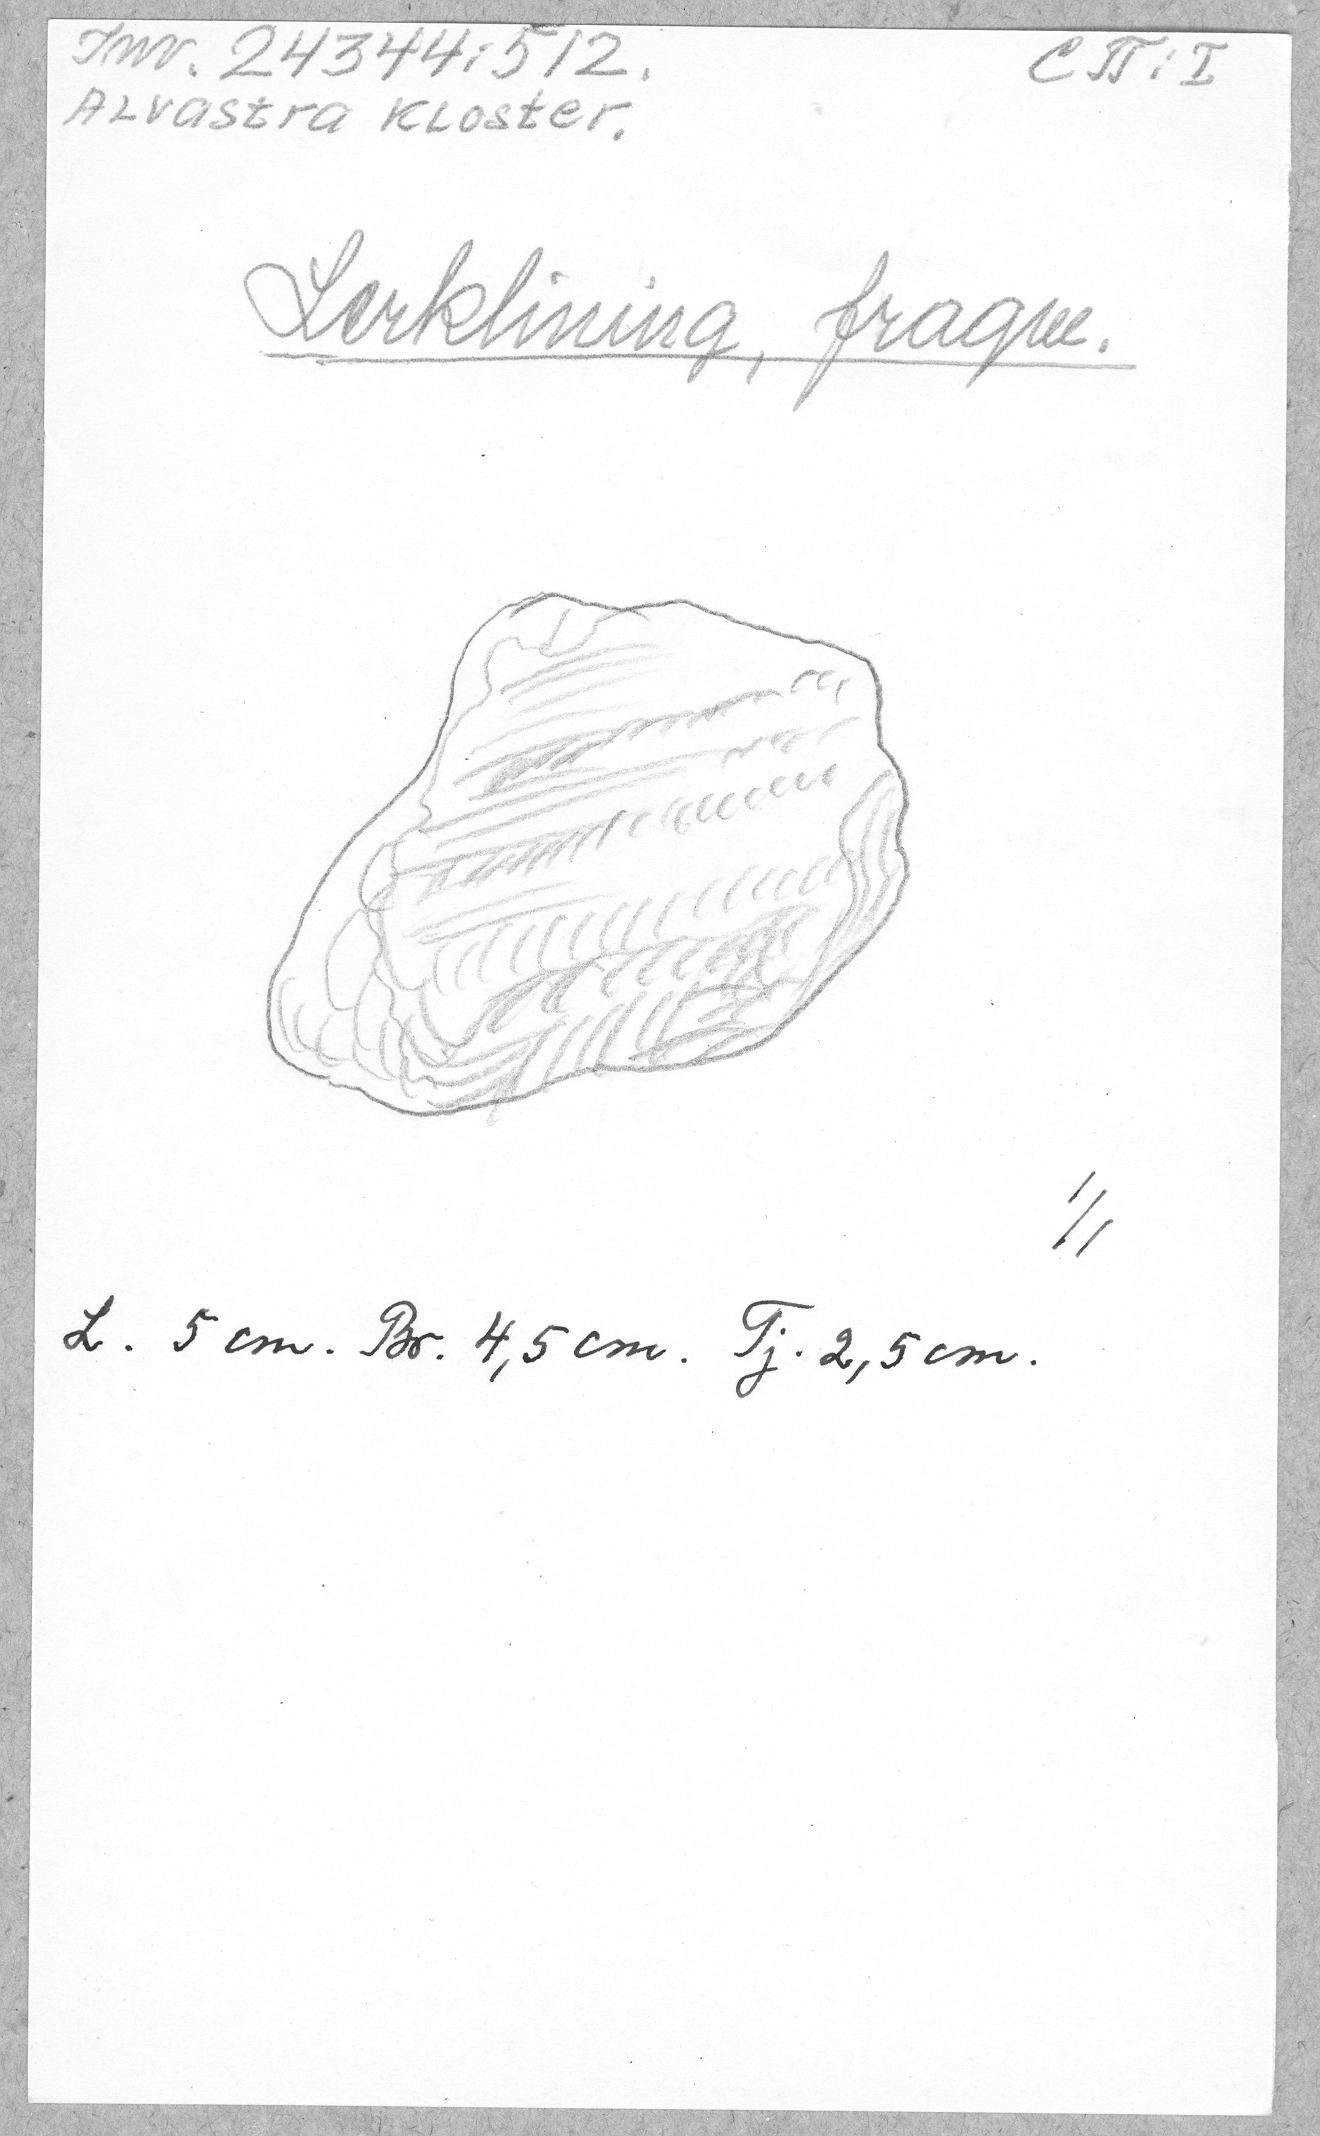 Inv. 24344:512.
C II: I
Alvastra kloster.
Lerklining, fragm.
1/1
L. 5 cm. Br. 4,5 cm. Tj. 2,5 cm.